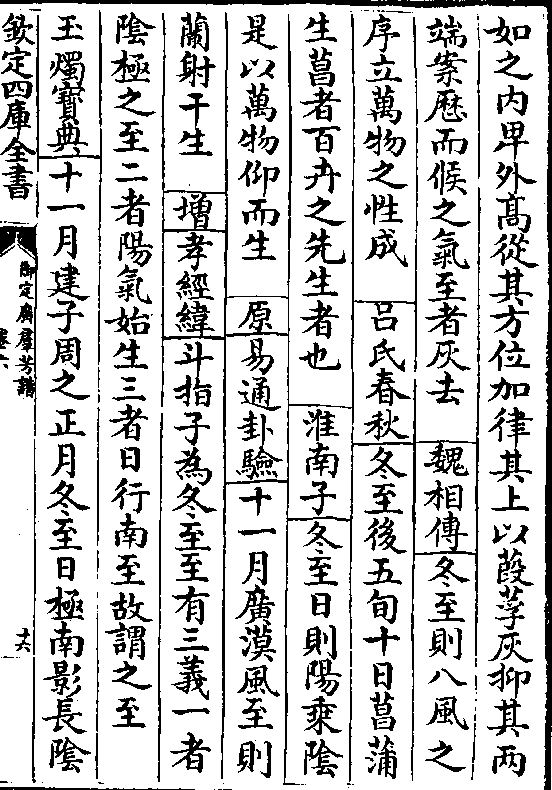 如之内卑外髙從其方位加律其上以葭莩灰抑其兩
端案厯而候之氣至者灰去　魏相傳冬至則八風之
序立萬物之性成　吕氏春秋冬至後五旬十日菖蒲
生菖者百卉之先生者也　淮南子冬至日則陽乗陰
是以萬物仰而生　原易通卦驗十一月廣漠風至則
蘭射干生　增孝經緯斗指子為冬至至有三義一者
陰極之至二者陽氣始生三者日行南至故謂之至
玉燭寳典十一月建子周之正月冬至日極南影長陰
欽定四庫全書
御定廣羣芳譜
卷六
十六